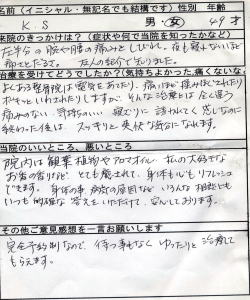 名前(イニシャル・無記名でも結構です) 性別 年齢
K.S 男・女 49才
来院のきっかけは?(症状や何で当院を知ったかなど)
左半身の腕や腰の痛みとしびれ。夜も寝れないほど
痛さでした。友人の紹介で知りました。
治療を受けてどうでしたか?(気持ちよかった、痛くないな
よくある整骨院は電気をあてたり、痛いほど揉みほぐされたり
ボキッといわされたりしますが、そんな治療とは全く違う
痛みのない、気持ちのいい
終わった後は、スッキリと爽快な気分になれます。
当院のいいところ、悪いところ
院内は観葉植物やアロマオイル、私の大好きな
お香の香りなど、とても癒されて、身体も心もリフレッシュ
できます。身体の事、病気の原因など いろんな相談にも
いつも的確な答えをいただけて、安心しております。
その他ご意見感想を一言お願いします
完全予約制なので、待つ事もなく ゆったりと治療して
もらえます。